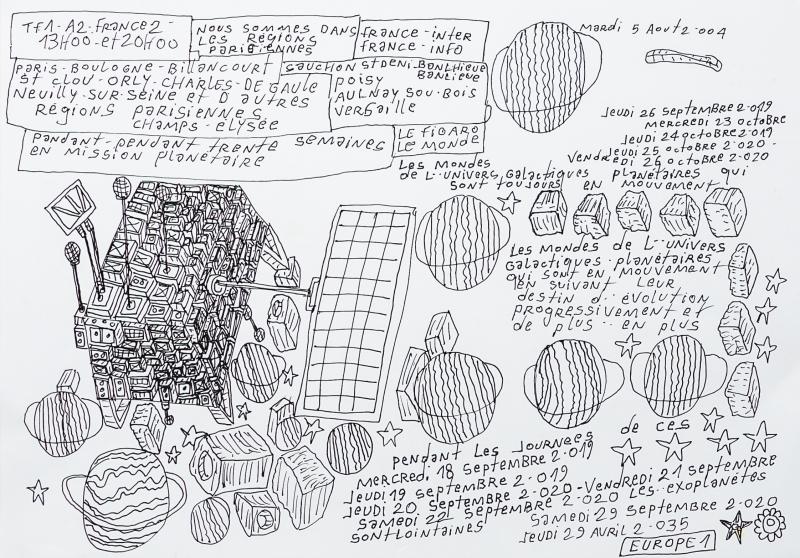 TF1-A2-FRANCE2-
13H00-et20H00
NOUS SOMMES DANS
LES RÉGIONS
PARISIENNES
FRANCE-inter
FRANCE-INFO
PARIS-BOULOGNE-BILLANCOURT
ST CLOU-ORLY-CHARLES-DE GAULE
NEUILLY-SUR-SEINE et D AUTRES
RÉGIONS PARISIENNES
CHAMPS-ELYSÉE
CAUCHON ST DENI-BANLHIEUE
POISY BANLIEUE
AULNAY SOU-BOIS
VERSAILLE
PANDANT-PENDANT TRENTE SEMAINES
EN MISSION PLANÉTAIRE
LE FIGARO
LE MONDE
Mardi 5 Aout 2·004
Jeudi 26 Septembre 2·019
Mercredi 23 octobre
Jeudi 24 octobre 2·019
Jeudi 25 octobre 2·020-
Vendredi 26 octobre 2·020
Les Mondes
de L··Univers Galactiques Planétaires qui
sont toujours en mouvement
Les Mondes de L··Univers
Galactiques-Planétaires
qui sont en mouvement
en suivant leur
destin d··évolution
progressivement et
de plus··en plus
de ces
pendant Les Journees
Mercredi 18 Septembre 2·019
Jeudi 19 Septembre 2·019
Jeudi 20 Septembre 2·020-Vendredi 21 Septembre
Samedi 22 Septembre 2·020 Les exoplanètes
sont Lointaines
Samedi 29 Septembre 2·020
Jeudi 29 Avril 2·035
EUROPE 1